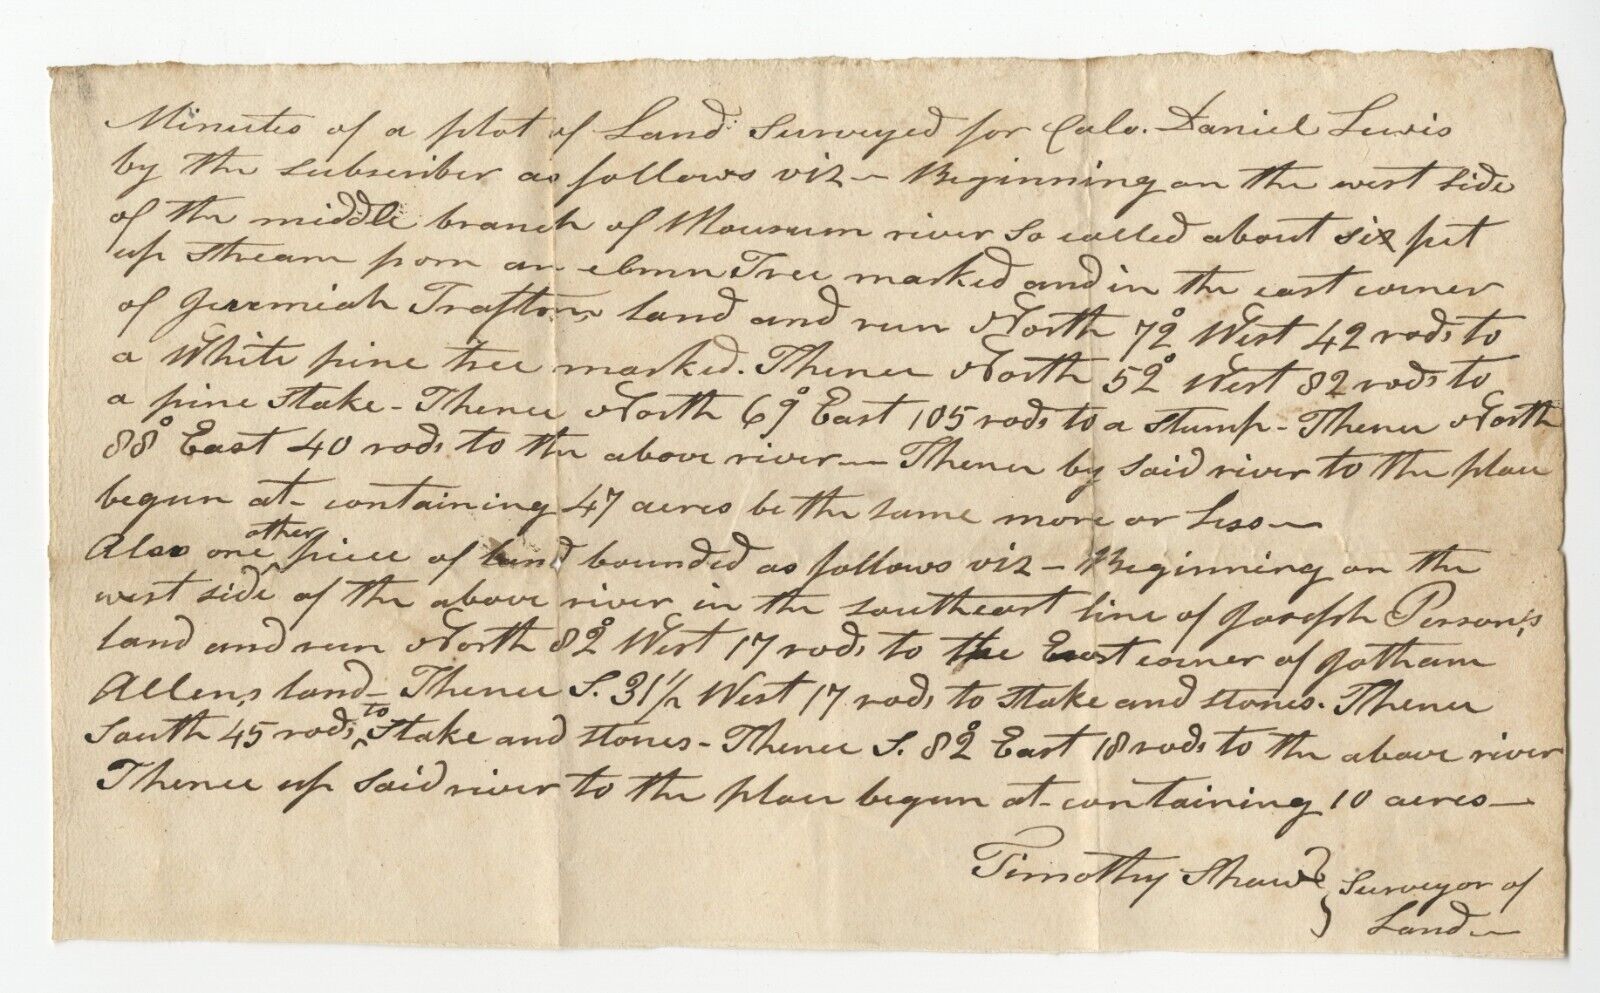 Minutes of a plot of Land Surveyed for Colo. Daniel Lewis
by the subscriber as follows viz - Beginning on the west side
of the middle branch of Mousum river so called about six feet
up stream from an elmn Tree marked and in the east corner
of Jeremiah Traftons land and run North 72° West 42 rods to
a White pine tree marked. Thence North 52° West 82 rods to
a pine stake - Thence North 69° East 105 rods to a stump - Thence North
88° East 40 rods to the above river - Thence by said river to the place
begun at - containing 47 acres be the same more or less -
Also one other piece of land bounded as follows viz - Beginning on the
west side of the above river in the southeast line of Joseph Person,s
land and run North 82° West 17 rods to the East corner of Jotham
Allen,s land - Thence S. 31 1/2 West 17 rods to stake and stones. Thence
South 45 rods to stake and stones - Thence S. 82° East 18 rods to the above river
Thence up said river to the place begun at - containing 10 acres -
Timothy Shaw } Surveyor of
Land -